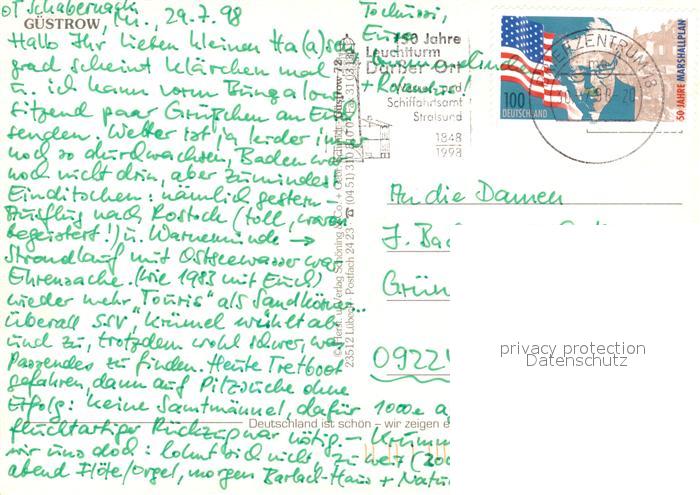 OT Schabernack,
Mi., 29.7.98
GÜSTROW
Hallo Ihr lieben kleinen Ha(a)sen
grad scheint Klärchen mal
u. ich kann vorm Bungalow
sitzend paar Grüßchen an Euch
senden. Wetter ist ja leider immer
noch so durchwachsen, Baden war
noch nicht drin, aber zumindest
Einditschen: nämlich gestern –
Ausflug nach Rostock (toll, waren
begeistert!) u. Warnemünde →
Strandlauf mit Ostseewasser war
Ehrensache. (Wie 1983 mit Euch)
wieder mehr "Touris" als Sandkörner...
überall SSV, Krümel wühlt ab
und zu, trotzdem wohl schwer, was
Passendes zu finden. Heute Tretboot
gefahren, dann auf Pilzsuche ohne
Erfolg: keine Samtmännel, dafür 1000e
fluchtartiger Rückzug war nötig. –
wir uns doch: lohnt sich nicht, zu weit (200
abend Flöte/Orgel, morgen Barlach-Haus + Natur
Tschüssi,
Eure
+ Roland!
150 Jahre
Leuchtturm
Darßer Ort
Wasser- und
Schiffahrtsamt
Stralsund
1848
1998
BRIEFZENTRUM 18
100
DEUTSCHLAND
50 JAHRE MARSHALLPLAN
An die Damen
J.
Grün
0922
privacy protection
Datenschutz
23512 Lübeck · Postfach 24 23
Deutschland ist schön – wir zeigen e